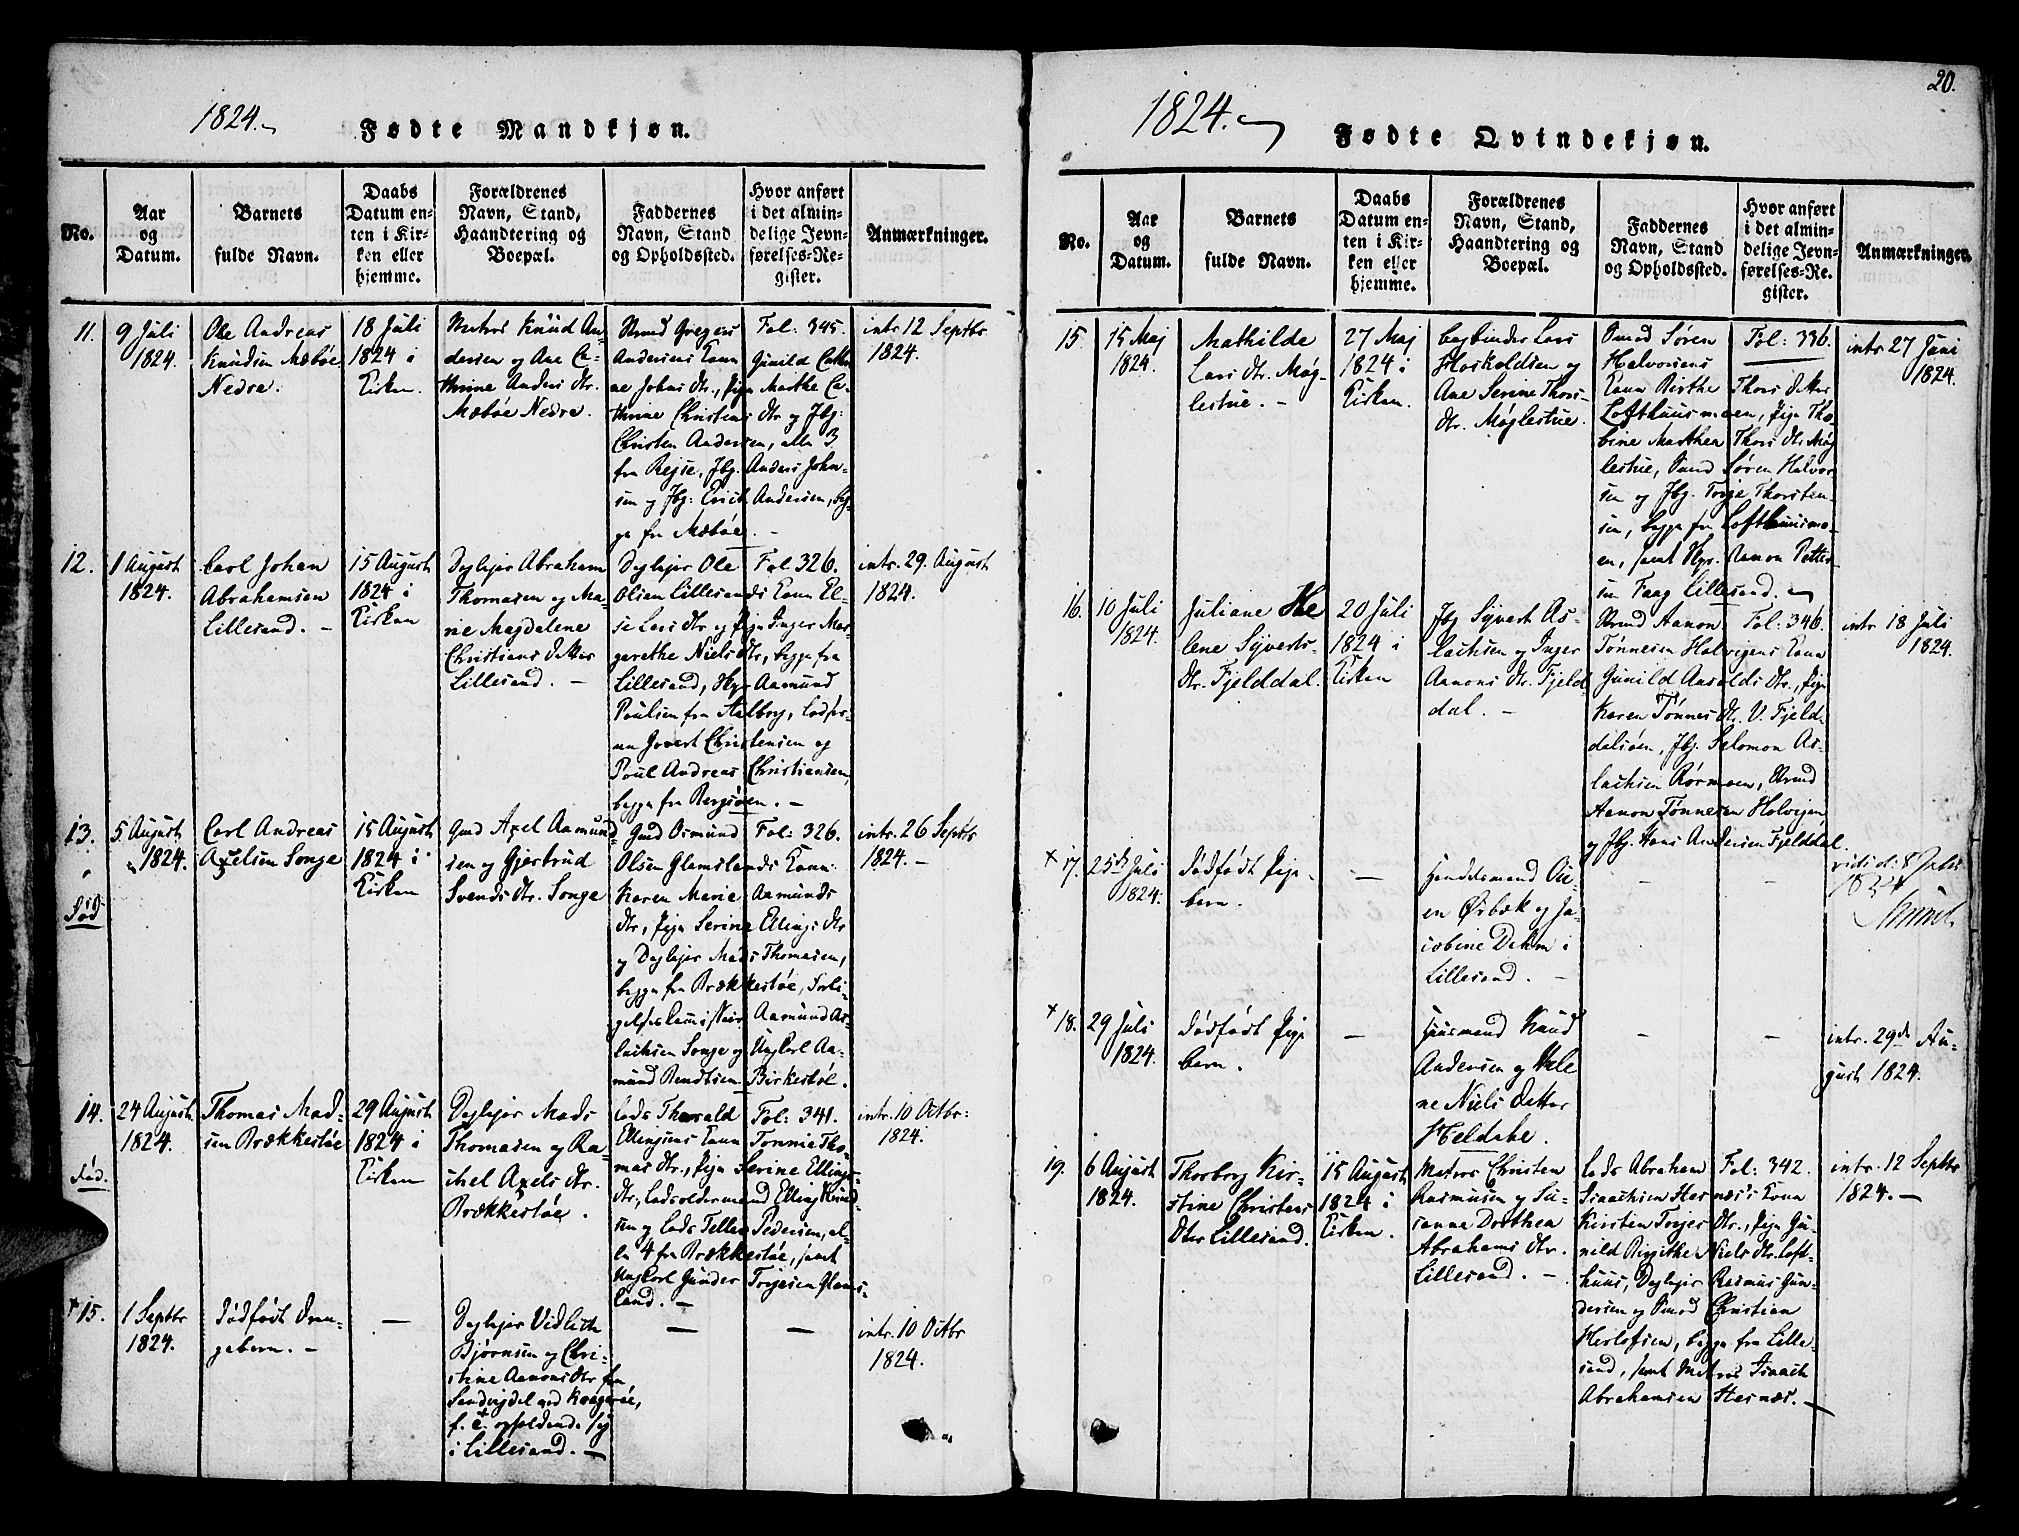 1824.
Fødte Mandkjøn.
No.
Aar
og
Datum.
Barnets
fulde Navn.
Daabs
Datum en-
ten i Kir-
ken eller
hjemme.
Forældrenes
Navn, Stand,
Haandtering og
Boepæl.
Faddernes
Navn, Stand
og Opholdssted.
Hvor anført
i det almin-
delige Jevn-
førelses-Re-
gister.
Anmærkninger.
11.
9 Juli
1824.
Ole Andreas
Knudsen Mæbøe
Nedre.
18 Juli
1824 i
Kirken.
Matros Knud An-
dersen og Ane Ca-
thrine Anders dtr.
Mæbøe Nedre.
Strmd Gregers
Andersens Kone
Gunild Cathri-
ne Johns dtr., Pige Marthe Ca-
thrine Christens dtr og Jbg:
Christen Andersen, alle 3
fra Rejse, Jbg. Anders John-
sen og Jbg: Erich Andersen, beg-
ge fra Mæbøe. -
Fol: 345.
intr 12 Septbr
1824.
12.
1 August
1824.
Carl Johan
Abrahamsen
Lillesand. -
15 August
1824 i
Kirken
Deylejer Abraham
Thomasen og Ma-
rie Magdalene
Christians datter
Lillesand. -
Deylejer Ole
Olsen Lillesands Kone El-
se Lars dtr og Pige Inger Mar-
garethe Niels dtr, begge fra
Lillesand, Hgr Aamund
Poulsen fra Aalborg,
Govert Christensen og
Poul Andreas Christiansen,
begge fra Bergsøen. -
Fol 326.
intr. 29. August
1824.
13.
5 August
1824.
Carl Andreas
Axelsen Songe
15 August
1824 i
Kirken
Gmd Axel Aamund-
sen og Gjertrud
Svends dtr. Songe
Gmd Osmund
Olsen Glamslands Kone
Karen Marie Aamunds
dtr, Pige Serine Ellings dtr
og Deylejer Mads Thomasen,
begge fra Brækkestøe,
Aamund As-
lachsen Songe og Ungkarl Aa-
mund Bendtsen Birkestøl.
Fol: 326.
intr. 26 Septbr
1824. -
14.
24 August
1824.
Thomas Mad-
sen Brækkestøe
29 August
1824 i
Kirken
Deylejer Mads
Thomasen og Ra-
chel Axels dtr.
Brækkestøe.
Lods Tharald
Ellingsens Kone Tonnie Tho-
mas dtr., Pige Serine Ellings
dtr, Lodsoldermand Elling Knud-
sen og Lods Tellef Pedersen, al-
le 4 fra Brækkestøe, samt
Ungkarl Gunder Torjesen Glams-
land. -
Fol: 341.
intr. 10 Octbr:
1824.
Fød.
+ 15.
1 Septbr
1824.
Dødfødt Dren-
gebarn. -
-
Deylejer Vidlich
Bjørnsen og Chri-
stine Aanons dtr fra
i Lillesand. -
-
-
intr. 10 Octbr
1824.
20.
1824.
Fødte Qvindekjøn.
No.
Aar
og
Datum.
Barnets
fulde Navn.
Daabs
Datum en-
ten i Kir-
ken eller
hjemme.
Forældrenes
Navn, Stand,
Haandtering og
Boepæl.
Faddernes
Navn, Stand
og Opholdssted.
Hvor anført
i det almin-
delige Jevn-
førelses-Re-
gister.
Anmærkninger.
15.
15 Maj
1824.
Mathilde
Lars dtr. Møg-
lestue. -
27 Maj
1824 i
Kirken.
Bogbinder Lars
Hoskoldsen og
Ane Serine Thors-
dtr. Møglestue.
Smed Søren
Halvorsens
Kone Birthe Thors datter
Lofthuusmoen, Pige Tho-
bine Marthea Thors dtr Møg-
lestue, Smed Søren Halvor-
sen og Jbg. Torje Thorsten-
sen, begge fra Lofthuusmo-
en, samt Hgr. Aanon Petter-
sen Faag Lillesand.
Fol: 336.
intr 27 Juni
1824.
16.
10 Juli
1824.
Juliane He
lene Syverts-
dtr. Fjelddal.
20 Juli
1824 i
Kirken
Jbg Syvert As-
lachsen og Inger
Aanons dtr. Fjeld
dal. -
Strmd Aanon
Tønnesen Halvigens Kone
Gunild Asolds dtr., Pige
Karen Tønnes dtr. V. Fjeld-
dalsøen, Jbg. Salomon As-
lachsen Rørmoen, Strmd
Aanon Tønnesen Holvigen
og Jbg. Hans Andersen Fjelddal.
Fol: 346.
intr. 18 Juli
1824.
+ 17.
25de Juli
1824.
Dødfødt Pige
barn.
-
Handelsmand Ou-
en Ørbæk og Ja-
cobine Dahm i
Lillesand. -
-
-
1824
+ 18.
29 Juli
1824.
Dødfødt Pige
barn.
-
Huusmand Knud
Andersen og Hele
ne Niels datter
Heldahe.
-
-
intr. 29de Au-
gust 1824.
19.
6 August
1824.
Thorborg Kir-
stine Christens
dtr Lillesand.
15 August
1824 i
Kirken.
Matros Christen
Rasmusen og Su-
sanne Dorthea
Abrahams dtr.
Lillesand. -
Lods Abraham
Isaachsen Hesnæs's Kone
Kirsten Torjes dtr., Pige Gu-
nild Birgithe Niels dtr. Loft-
huus, Deylejer Rasmus Gun-
dersen og Smed Christian
Herlofsen, begge fra Lille-
sand, samt Matros Isaach
Abrahamsen Hesnæs. -
Fol: 342.
intr. 12 Septbr
1824. -